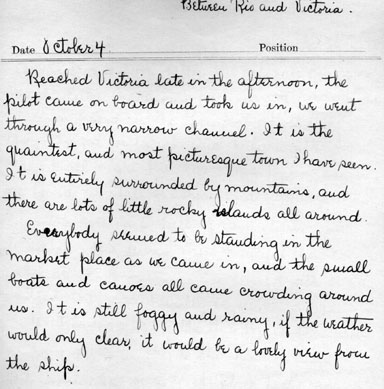 Between Rio and Victoria.
Date October 4 Position
Reached Victoria late in the afternoon, the
pilot came on board and took us in, we went
through a very narrow channel. It is the
quaintest, and most picturesque town I have seen.
It is entirely surrounded by mountains, and
there are lots of little rocky islands all around.
Everybody seemed to be standing in the
market place as we came in, and the small
boats and canoes all came crowding around
us. It is still foggy and rainy, if the weather
would only clear, it would be a lovely view from
the ship.